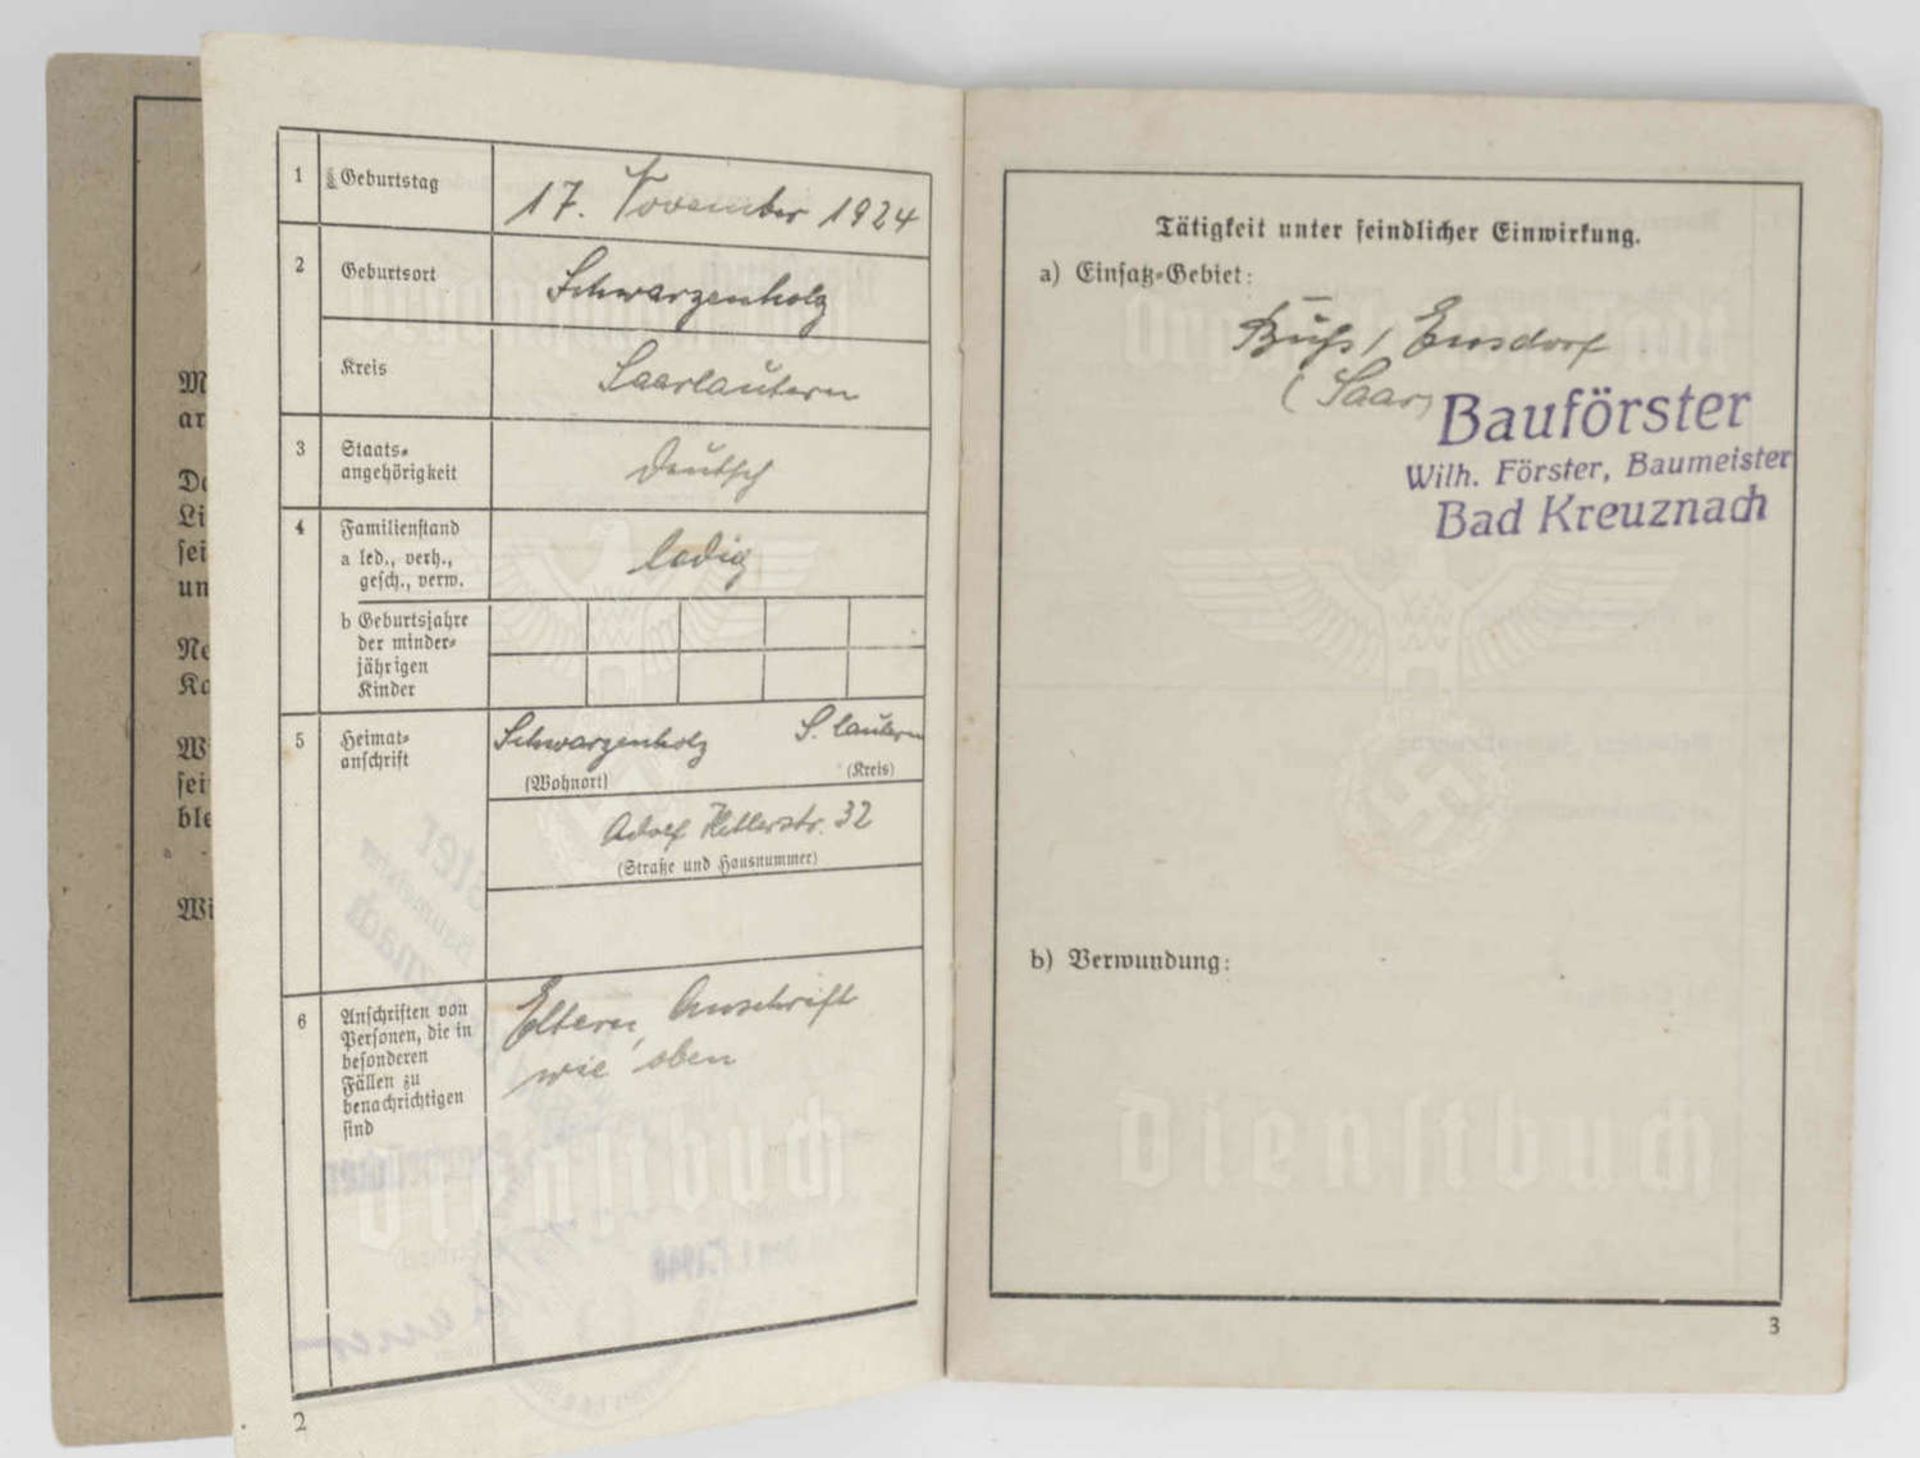 M
ar
Da
Li
sei
un
Ne
Ka
W
sei
ble
Wi
1 Geburtstag 17. November 1924
2 Geburtsort Schwarzenholz
Kreis Saarlautern
3 Staats-
angehörigkeit deutsch
4 Familienstand
a led., verh.,
gesch., verw. ledig
b Geburtsjahre
der minder-
jährigen
Kinder
5 Heimat-
anschrift Schwarzenholz S. lautern
(Wohnort) (Kreis)
Adolf Hitlerstr. 32
(Straße und Hausnummer)
6 Anschriften von
Personen, die in
besonderen
Fällen zu
benachrichtigen
sind
Eltern, Anschrift
wie oben
2
Tätigkeit unter feindlicher Einwirkung.
a) Einsatz-Gebiet:
Ensdorf
(Saar)
Bauförster
Wilh. Förster, Baumeister
Bad Kreuznach
b) Verwundung:
Dienstbuch
3